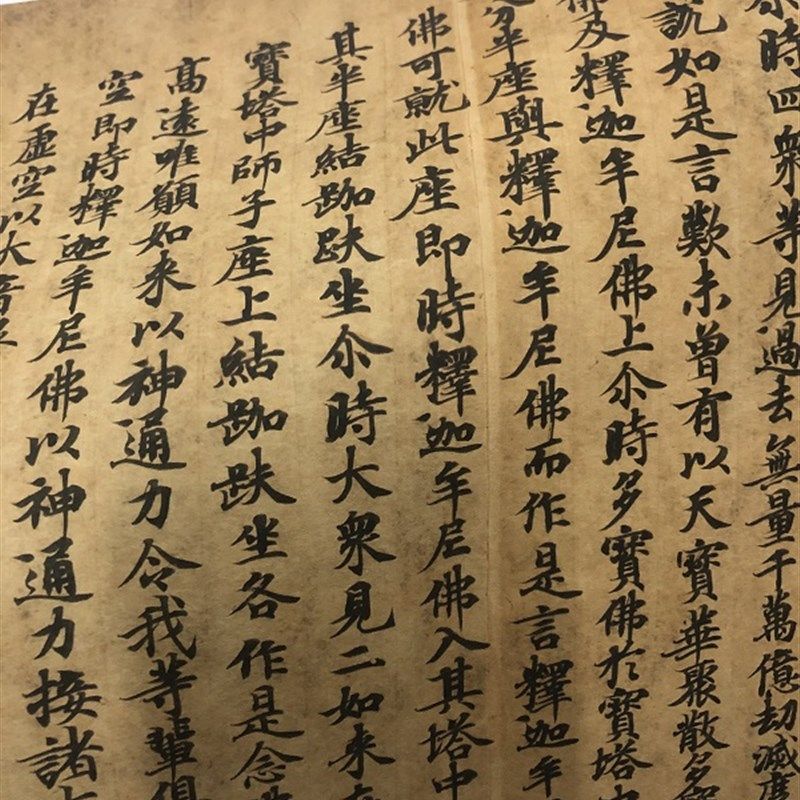 尒時四衆等見過去無量千萬億劫滅度
說如是言歎未曾有以天寶華聚散多寶
佛及釋迦牟尼佛上尒時多寶佛於寶塔中
分半座與釋迦牟尼佛而作是言釋迦牟
佛可就此座即時釋迦牟尼佛入其塔中
其半座結跏趺坐尒時大衆見二如来在
寶塔中師子座上結跏趺坐各作是念佛
高遠唯願如来以神通力令我等輩俱
空即時釋迦牟尼佛以神通力接諸大
在虛空以大音聲